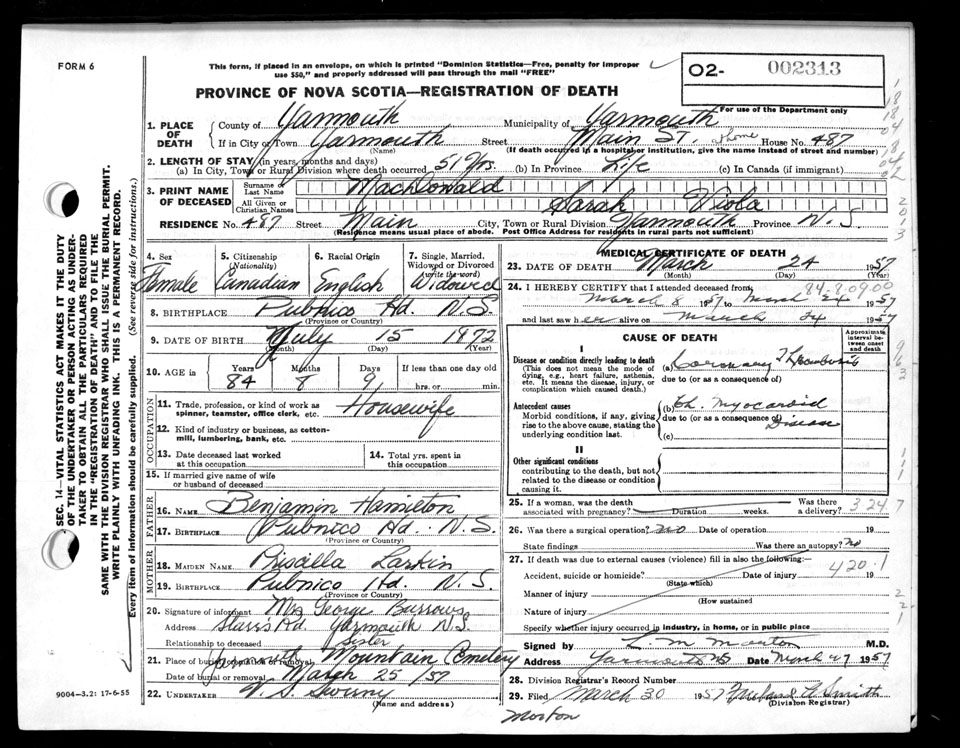 FORM 6
This form, if placed in an envelope, on which is printed "Dominion Statistics—Free, penalty for improper
use $50," and properly addressed will pass through the mail "FREE"
O2- 002313
For use of the Department only
PROVINCE OF NOVA SCOTIA—REGISTRATION OF DEATH
1. PLACE OF DEATH
County of Yarmouth Municipality of Yarmouth
If in City or Town Yarmouth Street Main St. home House No. 487
(Name) (If death occurred in a hospital or institution, give the name instead of street and number)
2. LENGTH OF STAY (in years, months and days)
(a) In City, Town or Rural Division where death occurred 51 Yrs. (b) In Province Life (c) In Canada (if immigrant)
3. PRINT NAME OF DECEASED
Surname or Last Name MacDonald
All Given or Christian Names Sarah Viola
RESIDENCE No. 487 Street Main City, Town or Rural Division Yarmouth Province N.S.
(Residence means usual place of abode. Post Office Address for residents in rural parts not sufficient)
4. Sex Female
5. Citizenship (Nationality) Canadian
6. Racial Origin English
7. Single, Married, Widowed or Divorced (write the word) Widowed
8. BIRTHPLACE Pubnico Hd. N.S.
(Province or Country)
9. DATE OF BIRTH July 15 1872
(Month) (Day) (Year)
10. AGE in Years 84 Months 8 Days 9 If less than one day old
hrs. or min.
OCCUPATION
11. Trade, profession or kind of work as spinner, teamster, office clerk, etc. Housewife
12. Kind of industry or business, as cotton-mill, lumbering, bank, etc.
13. Date deceased last worked at this occupation
14. Total yrs. spent in this occupation
15. If married give name of wife or husband of deceased
FATHER
16. NAME Benjamin Hamilton
17. BIRTHPLACE Pubnico Hd. N.S.
(Province or Country)
MOTHER
18. MAIDEN NAME Priscilla Larkin
19. BIRTHPLACE Pubnico Hd. N.S
(Province or Country)
20. Signature of informant Mrs George Burrows
Address Starrs Rd. Yarmouth N.S.
Relationship to deceased Sister
21. Place of burial, cremation or removal Yarmouth Mountain Cemetery
Date of burial or removal March 25/57
22. UNDERTAKER V. S. Sweeny
(Name and address)
9004-3.2: 17-6-55
MEDICAL CERTIFICATE OF DEATH
23. DATE OF DEATH March 24 1957
(Month) (Day) (Year)
24. I HEREBY CERTIFY that I attended deceased from
84-8.09.00
March 8 1957 to March 24 1957
and last saw her alive on March 24 1957
CAUSE OF DEATH
Approximate interval between onset and death
I
Disease or condition directly leading to death
(This does not mean the mode of dying, e.g., heart failure, asthenia, etc. It means the disease, injury, or complication which caused death.)
(a) Coronary Thrombosis
due to (or as a consequence of)
Antecedent causes
Morbid conditions, if any, giving rise to the above cause, stating the underlying condition last.
(b) Ch. Myocardid Disease
due to (or as a consequence of)
(c)
II
Other significant conditions
contributing to the death, but not related to the disease or condition causing it.
25. If a woman, was the death associated with pregnancy? Duration weeks. Was there a delivery?
3 24 7
26. Was there a surgical operation? No Date of operation 19
State findings Was there an autopsy? No
27. If death was due to external causes (violence) fill in also the following:—
420.1
Accident, suicide or homicide? Date of injury 19
(State which)
Manner of injury
(How sustained
Nature of injury
Specify whether injury occurred in industry, in home, or in public place
Signed by L M Morton M.D.
Address Yarmouth NS Date March 27 1957
28. Division Registrar's Record Number
29. Filed March 30 1957 Smith
(Division Registrar)
Morton
SEC. 14—VITAL STATISTICS ACT MAKES IT THE DUTY
OF THE UNDERTAKER OR PERSON ACTING AS UNDER-
TAKER TO OBTAIN ALL THE PARTICULARS REQUIRED
IN THE "REGISTRATION OF DEATH" AND TO FILE THE
SAME WITH THE DIVISION REGISTRAR WHO SHALL ISSUE THE BURIAL PERMIT.
WRITE PLAINLY WITH UNFADING INK. THIS IS A PERMANENT RECORD.
Every item of information should be carefully supplied. (See reverse side for instructions.)